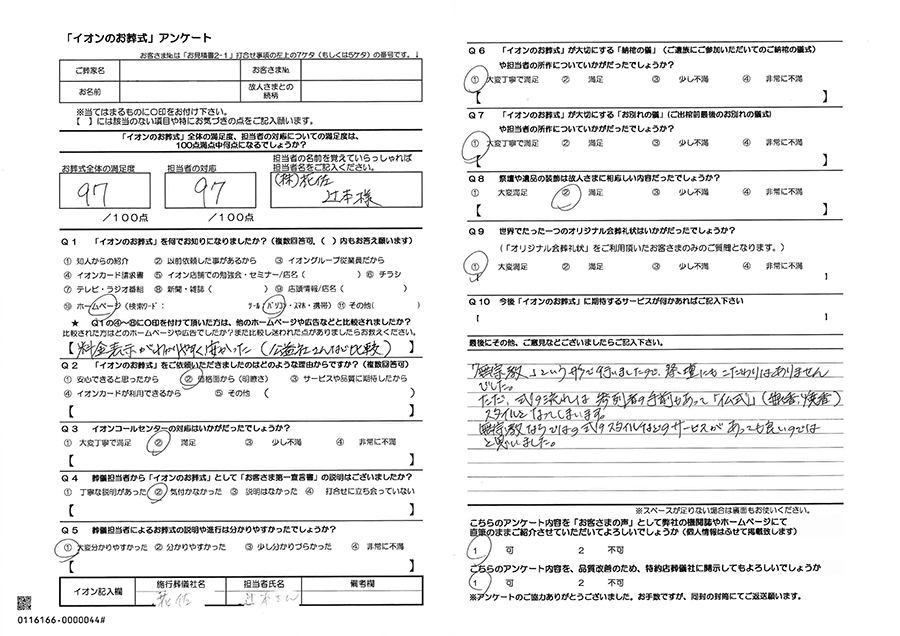 「イオンのお葬式」アンケート
お客さま№は「お見積書2-1」打合せ事項の左上の7ケタ(もしくは5ケタ)の番号です。↓
ご葬家名 お客さま№
お名前 故人さまとの続柄
※当てはまるものに○印をお付け下さい。
【 】には該当のない項目や特にお気づきの点をご記入願います。
「イオンのお葬式」全体の満足度、担当者の対応についての満足度は、
100点満点中何点になるでしょうか?
お葬式全体の満足度 担当者の対応 担当者の名前を覚えていらっしゃれば
担当者名をご記入ください。
97 97 (株)花佐
辻本様
/100点 /100点
Q1 「イオンのお葬式」を何でお知りになりましたか?(複数回答可、( )内もお答え願います)
① 知人からの紹介 ② 以前依頼した事があるから ③ イオングループ従業員だから
④ イオンカード請求書 ⑤ イオン店舗での勉強会・セミナー/店名( ) ⑥ チラシ
⑦ テレビ・ラジオ番組 ⑧ 新聞・雑誌( ) ⑨ 店頭情報/店名( )
⑩ ホームページ(検索ワード: ツール:パソコン・スマホ・携帯) ⑪ その他( )
★ Q1の④~⑩に○印を付けて頂いた方は、他のホームページや広告などと比較されましたか?
比較された方はどのホームページや広告でしたか?また比較し迷われた点がありましたらお教えください。
【料金表示がわかりやすく良かった(公益社さんなど比較)】
Q2 「イオンのお葬式」をご依頼いただきましたのはどのような理由からですか?(複数回答可)
① 安心できると思ったから ② 価格面から(明瞭さ) ③ サービスや品質に期待したから
④ イオンカードが利用できるから ⑤ その他 ( )
【 】
Q3 イオンコールセンターの対応はいかがだったでしょうか?
① 大変丁寧で満足 ② 満足 ③ 少し不満 ④ 非常に不満
【 】
Q4 葬儀担当者から「イオンのお葬式」として「お客さま第一宣言書」の説明はございましたか?
① 丁寧な説明があった ② 気付かなかった ③ 説明はなかった ④ 打合せに立ち会っていない
【 】
Q5 葬儀担当者によるお葬式の説明や進行は分かりやすかったでしょうか?
① 大変分かりやすかった ② 分かりやすかった ③ 少し分かりづらかった ④ 非常に不満
【 】
イオン記入欄 施行葬儀社名 担当者氏名 備考欄
花佐 辻本さん
0116166-0000044#
Q6 「イオンのお葬式」が大切にする「納棺の儀」(ご遺族にご参加いただいてのご納棺の儀式)
や担当者の所作についていかがだったでしょうか?
① 大変丁寧で満足 ② 満足 ③ 少し不満 ④ 非常に不満
【 】
Q7 「イオンのお葬式」が大切にする「お別れの儀」(ご出棺前最後のお別れの儀式)
や担当者の所作についていかがだったでしょうか?
① 大変丁寧で満足 ② 満足 ③ 少し不満 ④ 非常に不満
【 】
Q8 祭壇や遺品の装飾は故人さまに相応しい内容だったでしょうか?
① 大変満足 ② 満足 ③ 少し不満 ④ 非常に不満
【 】
Q9 世界でたった一つのオリジナル会葬礼状はいかがだったでしょうか?
(「オリジナル会葬礼状」をご利用頂いたお客さまのみのご質問となります。)
① 大変満足 ② 満足 ③ 少し不満 ④ 非常に不満
【 】
Q10 今後「イオンのお葬式」に期待するサービスが何かあればご記入下さい
【 】
最後にその他、ご意見などございましたらご記入下さい。
「無宗教」という形で行いましたので、祭壇にもこだわりはありません
でした。
ただ、式の流れは参列者の手前もあって「仏式」(担香・焼香)
スタイルとなってしまいます。
無宗教ならではの式のスタイルなどのサービスがあっても良いのでは
と思いました。
※スペースが足りない場合は裏面もお使いください。
こちらのアンケート内容を「お客さまの声」として弊社の機関誌やホームページにて
直筆のままご紹介させていただいてよろしいでしょうか(個人情報はふせて掲載致します)
1 可 2 不可
こちらのアンケート内容を、品質改善のため、特約店葬儀社に開示してもよろしいでしょうか
1 可 2 不可
※アンケートのご協力ありがとうございました。お手数ですが、同封の封筒にてご返送願います。